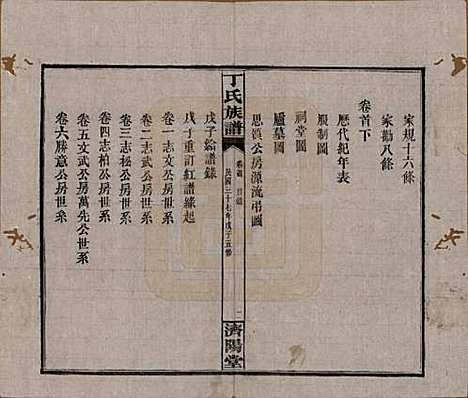 家規十六條
家勸八條
卷首下
歷代紀年表
服制圖
祠堂圖
廬墓圖
思漢公房源流弔圖
丁氏族譜
卷首 目錄
民國三十七年戊子五修
二
濟陽堂
戊子給譜錄
戊子重訂紅譜緣起
卷一志文公房世系
卷二志武公房世系
卷三志極公房世系
卷四志柏公房世系
卷五文武公房萬先公世系
卷六勝意公房世系